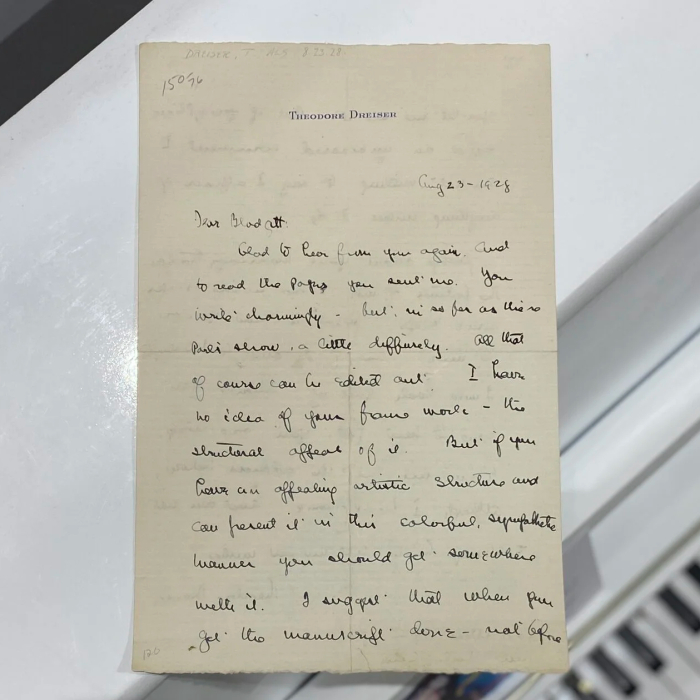 DREISER, T ALS 8.23.28
THEODORE DREISER
Aug 23 - 1928
Dear Blodgett:
Glad to hear from you again. And
to read the pages you sent me. You
write charmingly - but, in so far as these
pages show, a little diffusely. All that
of course can be edited out. I have
no idea of your frame work - the
structural appeal of it. But if you
have an appealing artistic structure and
can present it in this colorful, sympathetic
manner you should get somewhere
with it. I suggest that when you
get the manuscript done - not before